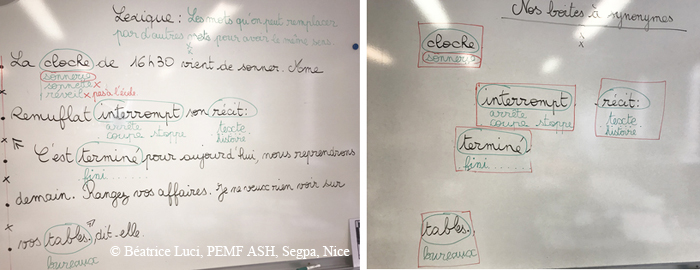 Lexique : Les mots qu'on peut remplacer
par d'autres mots pour avoir le même sens.
La cloche de 16h30 vient de sonner. Mme
sonnerie
sonnette x
réveil x pas à l'école
Remuflat interrompt son récit :
arrête
coupe stoppe
texte
histoire
C'est terminé pour aujourd'hui, nous reprendrons
fini
demain. Rangez vos affaires. Je ne veux rien voir sur
vos tables, dit-elle.
bureaux
© Béatrice Luci, PEMF ASH, Segpa, Nice
Nos boîtes à synonymes
cloche
sonnerie
interrompt
arrête
coupe stoppe
récit :
texte
histoire
terminé
fini
tables,